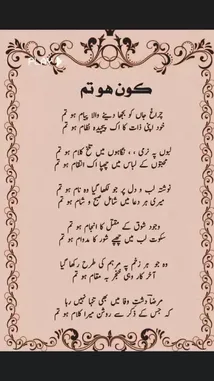 کون ھو تم
چراغِ جاں کو بجھا دینے والا پیام ہو تم
خود اپنی ذات کا اک پیچیدہ نظام ہو تم
لبوں پہ نرمی ، ، نگاہوں میں تلخ کلام ہو تم
محبتوں کے لباس میں چھپا اک انتقام ہو تم
نوشتہ لب و دل پر جو لکھا گیا وہ نام ہو تم
میری ہر دعا میں شامل صبح و شام ہو تم
وجودِ شوق کے مقتل کا انجام ہو تم
سکوتِ لب میں چھپے شور کا مدوام ہو تم
وہ جو ہر زخم پہ مرہم کی طرح رکھا گیا
آخر کار وہی خنجر بہ مقام ہو تم
دشتِ وفا میں بھی تنہا نہیں رہا
کہ جس کے ذکر سے روشن میرا کلام ہو تم